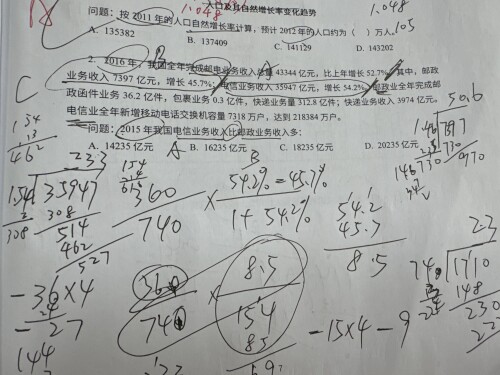 人口及其自然增长率变化趋势
1.048
1.048
问题：按 2011 年的人口自然增长率计算，预计 2012 年的人口约为（ ）万人。
105
A. 135382 B. 137409 C. 141129 D. 143202
2. 2016 年，我国全年完成邮电业务收入总量 43344 亿元，比上年增长 52.7%。其中，邮政
业务收入 7397 亿元，增长 45.7%；电信业务收入 35947 亿元，增长 54.2%。邮政业全年完成邮
政函件业务 36.2 亿件，包裹业务 0.3 亿件，快递业务量 312.8 亿件；快递业务收入 3974 亿元。
电信业全年新增移动电话交换机容量 7318 万户，达到 218384 万户。
问题：2015 年我国电信业务收入比邮政业务收入多：
A. 14235 亿元 B. 16235 亿元 C. 18235 亿元 D. 20235 亿元
C
A
B
134
13
462
233
154
35947
308
308
514
462
527
154
616
360
740
×
54.2% - 45.7%
1 + 54.2%
54.2
45.7
8.5
506
146
7397
730
970
23
740
1710
148
230
-36×4
-27
144
560
740
×
8.5
154
85
-15×4-9